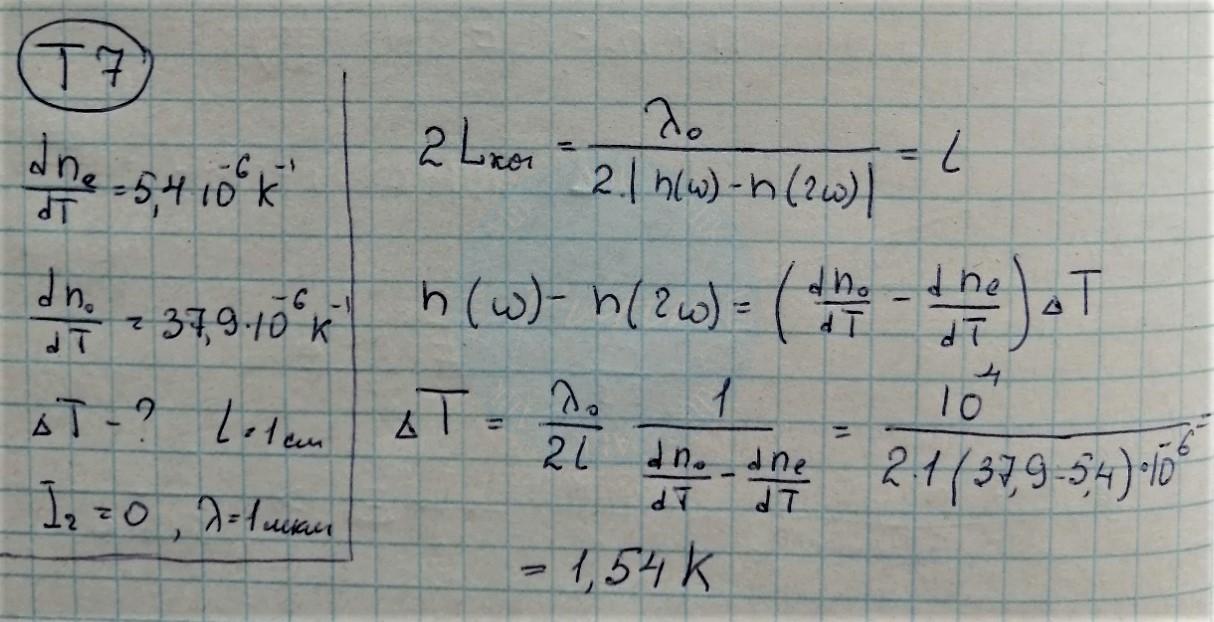 T 7
dnₑ/dT = 5,4 10⁻⁶ K⁻¹
dn₀/dT = 37,9·10⁻⁶ K⁻¹
ΔT - ? L = 1 см
I₂ = 0, λ = 1 мкм
2 Lког = λ₀ / 2·|n(ω) - n(2ω)| = L
n(ω) - n(2ω) = (dn₀/dT - dnₑ/dT) ΔT
ΔT = λ₀/2L 1/(dn₀/dT - dnₑ/dT) = 10⁻⁴ / 2·1(37,9-5,4)·10⁻⁶
= 1,54 K